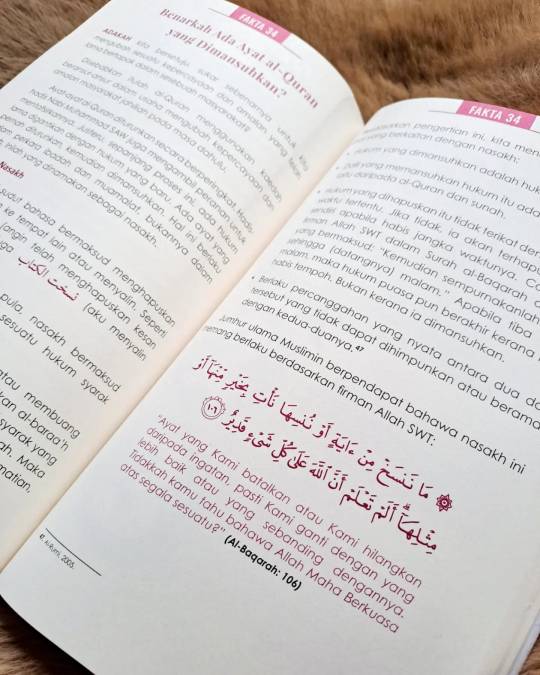 FAKTA 34
Benarkah Ada Ayat al-Quran
yang Dimansuhkan?
ADAKAH kita penentu, sukar sebenarnya untuk kita
mengubah sesuatu kepercayaan dan amalan yang telah
lama bertapak dalam sesebuah masyarakat.
Disebabkan itulah al-Quran menggunakan kaedah
beransur-ansur dalam usaha mengubah kepercayaan dan
amalan masyarakat jahiliah pada masa dahulu.
Ayat-ayat al-Quran diturunkan secara berperingkat. Hadis-
hadis Nabi Muhammad SAW juga mengambil peranan untuk
Justeru, sepanjang proses ini, ada hukum
lama digantikan dengan hukum yang baru. Ada ayat yang
pernah diturunkan kemudian dimansuhkan. Hal ini berlaku
perkara ibadah dan muamalat, bukannya dalam
inilah yang dinamakan sebagai nasakh.
Nasakh
sudut bahasa bermaksud menghapuskan
ke tempat lain atau menyalin. Seperti
(angin telah menghapuskan kesan
نسخت الكتاب (aku menyalin
pula, nasakh bermaksud
sesuatu hukum syarak
atau membuang
kan al-baraa'h
syarak yang
ah. Maka
matian.
FAKTA 34
pengertian ini, kita
yang berkaitan dengan nasakh:
Hukum yang dimansuhkan adalah huk
Dalil yang memansuhkan hukum itu ada
satu daripada al-Quran dan sunah.
• Hukum yang dihapuskan itu tidak terikat de
waktu tertentu. Jika tidak, ia akan terhapu
sendiri apabila habis jangka waktunya. Co
firman Allah SWT dalam Surah al-Baqarah a
yang bermaksud: "Kemudian sempurnakanlah
sehingga (datangnya) malam." Apabila tiba
malam, maka hukum puasa pun berakhir kerana
habis tempoh. Bukan kerana ia dimansuhkan.
• Berlaku percanggahan yang nyata antara dua da
tersebut yang tidak dapat dihimpunkan atau berama
dengan kedua-duanya.47
Jumhur ulama Muslimin berpendapat bahawa nasakh ini
memang berlaku berdasarkan firman Allah SWT:
۞ مَا نَنسَخْ مِنْ ءَايَةٍ أَوْ نُنسِهَا نَأْتِ بِخَيْرٍ مِّنْهَآ أَوْ
مِثْلِهَآ ۗ أَلَمْ تَعْلَمْ أَنَّ ٱللَّهَ عَلَىٰ كُلِّ شَىْءٍ قَدِيرٌ ١٠٦
"Ayat yang Kami batalkan atau Kami hilangkan
daripada ingatan, pasti Kami ganti dengan yang
lebih baik atau yang sebanding dengannya.
Tidakkah kamu tahu bahawa Allah Maha Berkuasa
atas segala sesuatu?"
(Al-Baqarah: 106)
47. Al-Rumi, 2005.